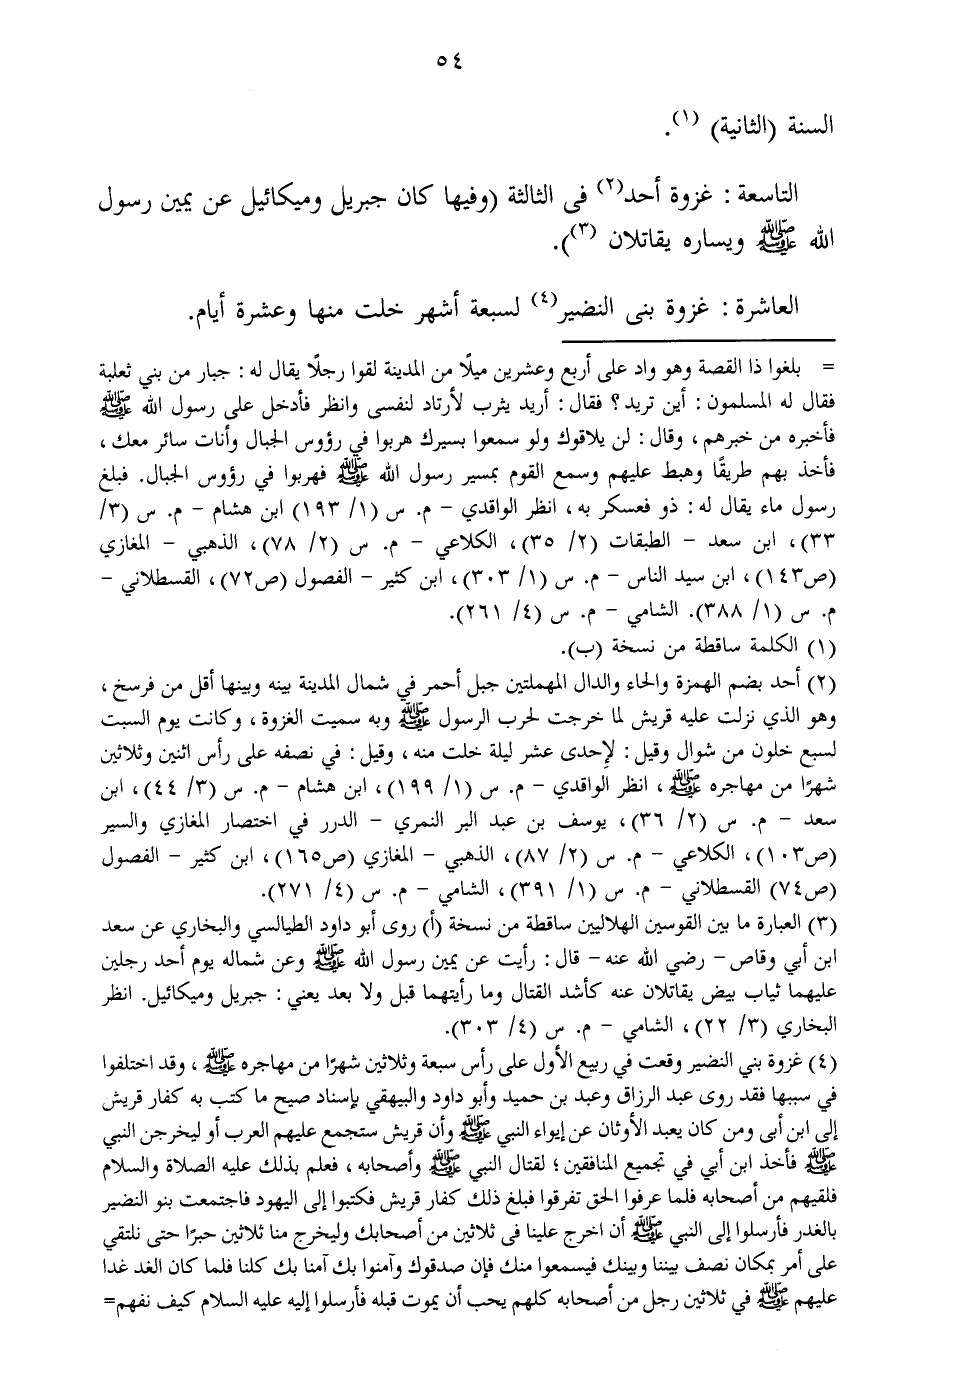 ٥٤
السنة (الثانية) (١).
التاسعة : غزوة أحد(٢) فى الثالثة (وفيها كان جبريل وميكائيل عن يمين رسول
الله ﷺ ويساره يقاتلان (٣)).
العاشرة : غزوة بنى النضير(٤) لسبعة أشهر خلت منها وعشرة أيام.
= بلغوا ذا القصة وهو واد على أربع وعشرين ميلًا من المدينة لقوا رجلًا يقال له : جبار من بني ثعلبة
فقال له المسلمون : أين تريد؟ فقال : أريد يثرب لأرتاد لنفسى وانظر فأدخل على رسول الله ﷺ
فأخبره من خبرهم ، وقال : لن يلاقوك ولو سمعوا بسيرك هربوا في رؤوس الجبال وأنات سائر معك ،
فأخذ بهم طريقًا وهبط عليهم وسمع القوم بمسير رسول الله ﷺ فهربوا في رؤوس الجبال. فبلغ
رسول ماء يقال له : ذو فعسكر به ، انظر الواقدي - م. س (١/ ١٩٣) ابن هشام - م. س (٣/
٣٣)، ابن سعد - الطبقات (٢/ ٣٥)، الكلاعي - م. س (٢/ ٧٨)، الذهبي - المغازي
(ص١٤٣)، ابن سيد الناس - م. س (١/ ٣٠٣)، ابن كثير - الفصول (ص٧٢)، القسطلاني -
م. س (١/ ٣٨٨). الشامي - م. س (٤/ ٢٦١).
(١) الكلمة ساقطة من نسخة (ب).
(٢) أحد بضم الهمزة والحاء والدال المهملتين جبل أحمر في شمال المدينة بينه وبينها أقل من فرسخ ،
وهو الذي نزلت عليه قريش لما خرجت لحرب الرسول ﷺ وبه سميت الغزوة ، وكانت يوم السبت
لسبع خلون من شوال وقيل : لإحدى عشر ليلة خلت منه ، وقيل : في نصفه على رأس اثنين وثلاثين
شهرًا من مهاجره ﷺ ، انظر الواقدي - م. س (١/ ١٩٩)، ابن هشام - م. س (٣/ ٤٤)، ابن
سعد - م. س (٢/ ٣٦)، يوسف بن عبد البر النمري - الدرر في اختصار المغازي والسير
(ص١٠٣)، الكلاعي - م. س (٢/ ٨٧)، الذهبي - المغازي (ص١٦٥)، ابن كثير - الفصول
(ص٧٤) القسطلاني - م. س (١/ ٣٩١)، الشامي - م. س (٤/ ٢٧١).
(٣) العبارة ما بين القوسين الهلاليين ساقطة من نسخة (أ) روى أبو داود الطيالسي والبخاري عن سعد
ابن أبي وقاص - رضي الله عنه - قال : رأيت عن يمين رسول الله ﷺ وعن شماله يوم أحد رجلين
عليهما ثياب بيض يقاتلان عنه كأشد القتال وما رأيتهما قبل ولا بعد يعني : جبريل وميكائيل. انظر
البخاري (٣/ ٢٢)، الشامي - م. س (٤/ ٣٠٣).
(٤) غزوة بني النضير وقعت في ربيع الأول على رأس سبعة وثلاثين شهرًا من مهاجره ﷺ ، وقد اختلفوا
في سببها فقد روى عبد الرزاق وعبد بن حميد وأبو داود والبيهقي بإسناد صيح ما كتب به كفار قريش
إلى ابن أبى ومن كان يعبد الأوثان عن إيواء النبي ﷺ وأن قريش ستجمع عليهم العرب أو ليخرجن النبي
ﷺ فأخذ ابن أبي في تجميع المنافقين ؛ لقتال النبي ﷺ وأصحابه ، فعلم بذلك عليه الصلاة والسلام
فلقيهم من أصحابه فلما عرفوا الحق تفرقوا فبلغ ذلك كفار قريش فكتبوا إلى اليهود فاجتمعت بنو النضير
بالغدر فأرسلوا إلى النبي ﷺ أن اخرج علينا فى ثلاثين من أصحابك وليخرج منا ثلاثين حبرًا حتى نلتقي
على أمر بمكان نصف بيننا وبينك فيسمعوا منك فإن صدقوك وآمنوا بك آمنا بك كلنا فلما كان الغد غدا
عليهم ﷺ في ثلاثين رجل من أصحابه كلهم يحب أن يموت قبله فأرسلوا إليه عليه السلام كيف نفهم=